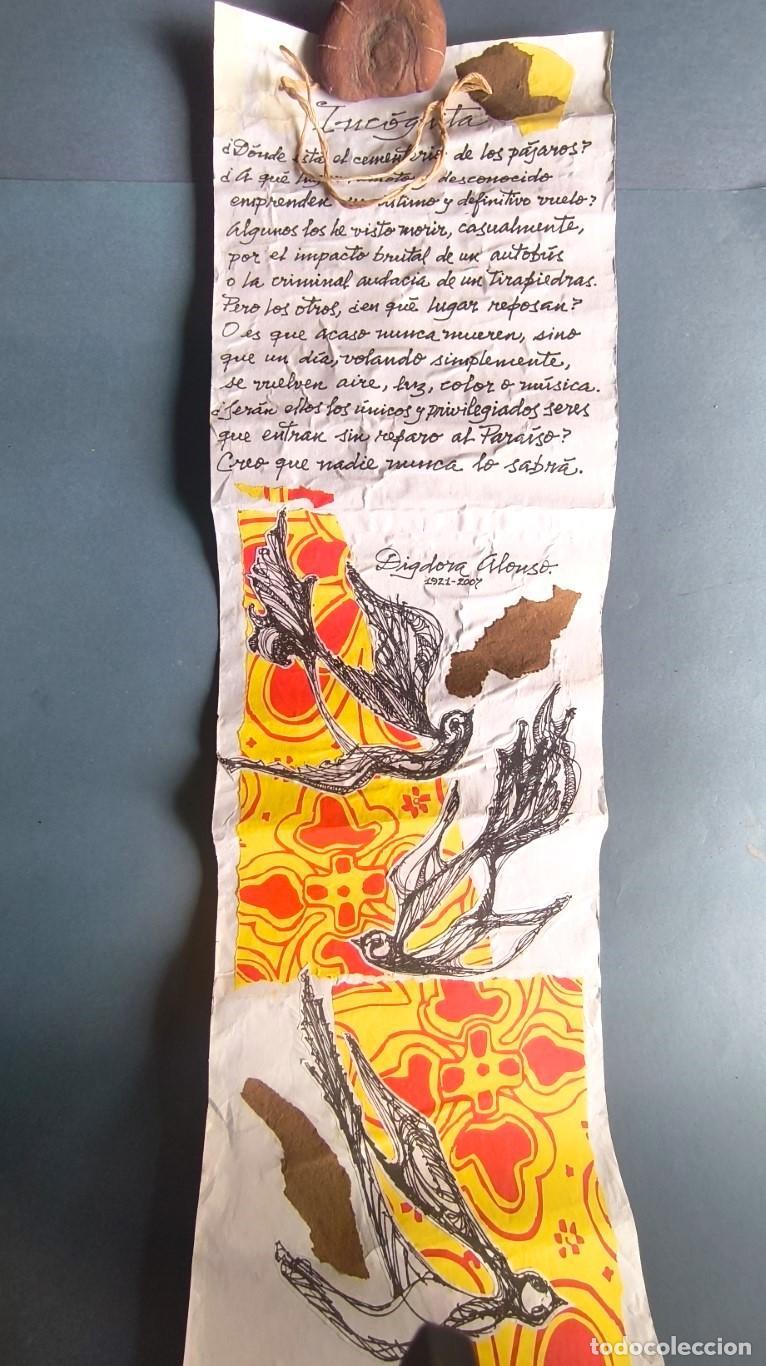 Incógnita
¿Dónde está el cementerio de los pájaros?
¿A qué lugar remoto y desconocido
emprenden su último y definitivo vuelo?
Algunos los he visto morir, casualmente,
por el impacto brutal de un autobús
o la criminal audacia de un tirapiedras.
Pero los otros, ¿en qué lugar reposan?
O es que acaso nunca mueren, sino
que un día, volando simplemente,
se vuelven aire, luz, color o música.
¿Serán ellos los únicos y privilegiados seres
que entran sin reparo al Paraíso?
Creo que nadie nunca lo sabrá.
Digdora Alonso.
1921-2007
todocoleccion